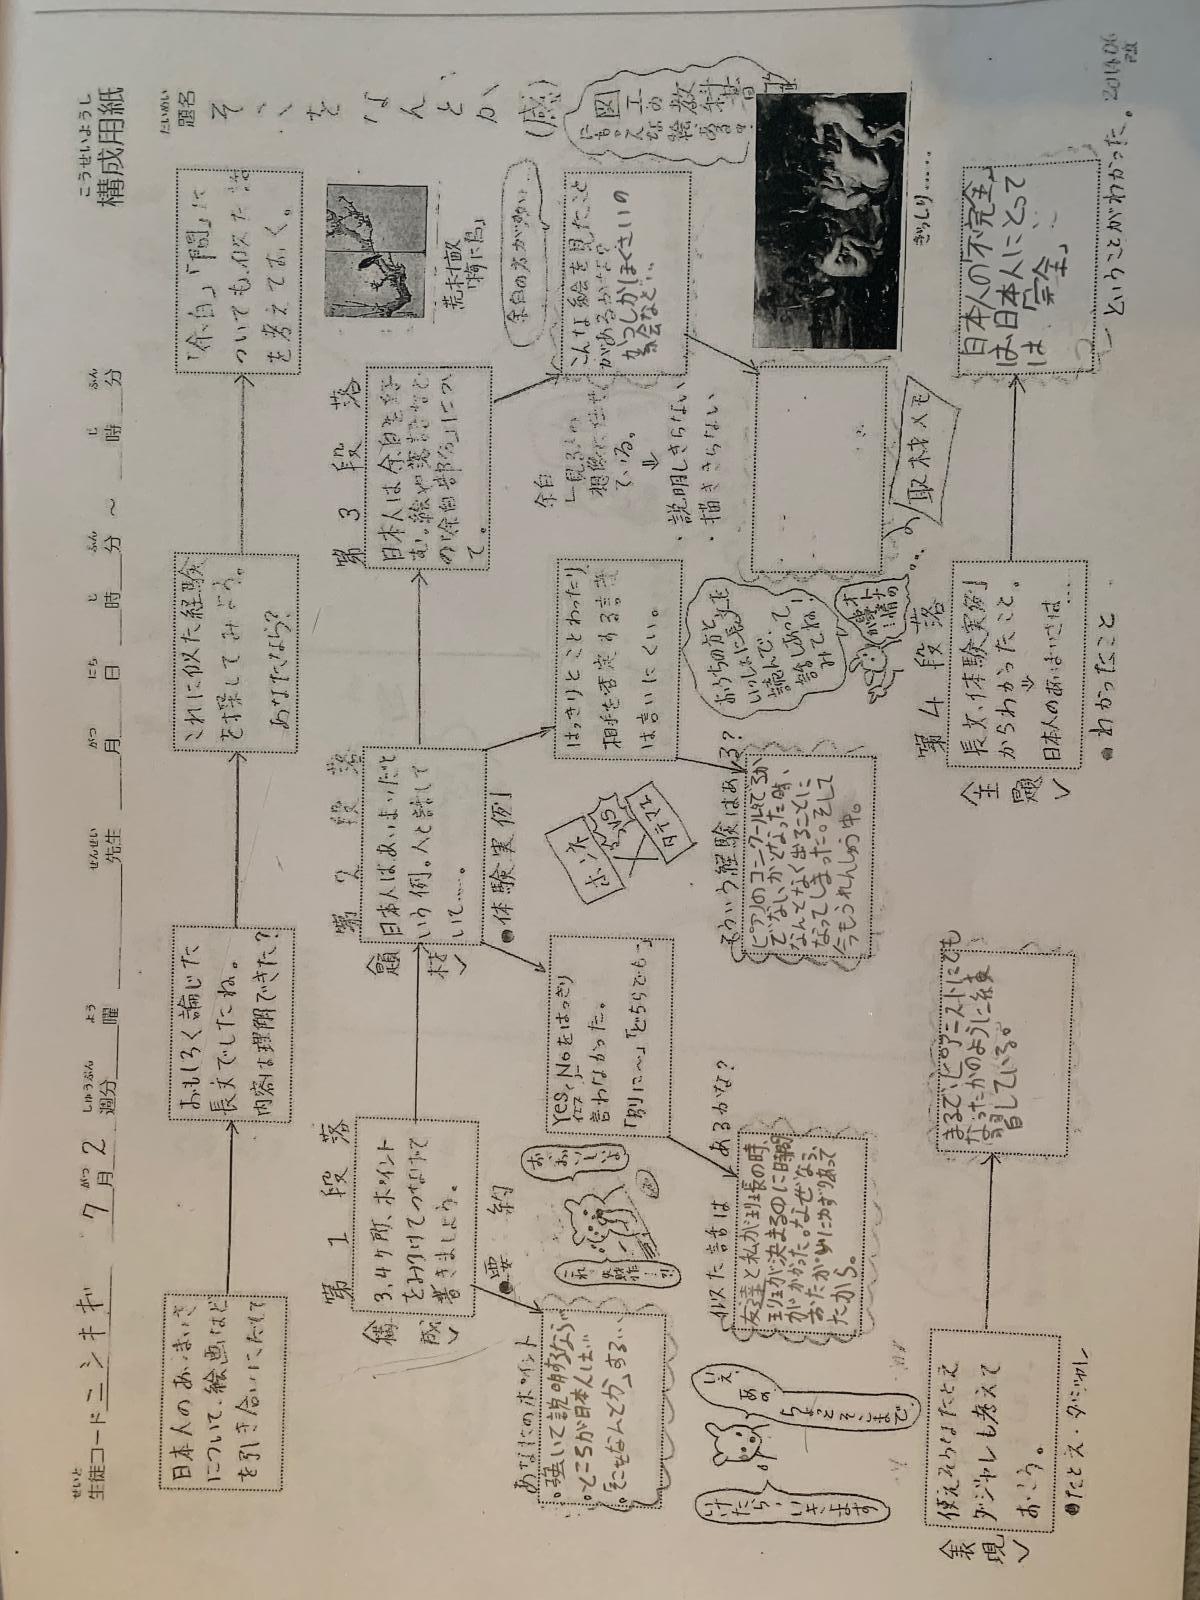 こうせいようし
構成用紙
せいと
生徒コード ニシキギ 7 がつ月 2 しゅうぶん週分 よう曜 せんせい先生 がつ月 にち日 じ時 ふん分 ～ じ時 ふん分
だいめい
題名
そこをなんとか
(感)
日本人のあいまいさ
について、絵画など
を引き合いにだして
おもしろく論じた
長文でしたね。
内容は理解できた?
これに似た経験
を探してみよう。
あなたなら?
「余白」「間」に
ついても、似た話
を考えておく。
第1段落
<構成>
3,4ヶ所、ポイント
をみつけてつなげて
書きましょう。
●要約
第2段落
<題材>
日本人はあいまいだと
いう例。人と話して
いて……。
●体験実例
第3段落
日本人は余白を好
む。絵や落語など
の「余白部分」につい
て。
荒木十畝
「梅に鳥」
余白の方が多い…
あなたのポイント
。強いて説明するならば
。ところが日本人は…
。「そこをなんとか」する…
Yes, Noをはっきり
イエス ノー
言わなかった。
「別に～」「どちらでも」
はっきりとことわったり
相手を否定する言葉
は言いにくい。
こんな絵を見たこと
があるかな?
かつしかほくさいの
絵など…
図工の教科書
余白
「見る人の
想像に任せ
ている。
↓
・説明しきらない
・描ききらない
これ
失敗作…!!
お、おいしいよ
似た話はあるかな?
友達と私が班長の時、
班が決まるのに時間
がかかった。なぜなら、
おたがいにゆずりあって
たから。
そういう経験はある?
ピアノのコンクールにでるか
でないかとなった時、
なんとなく出ることに
なってしまった。そして
今もうれんしゅう中。
おうちの方と
いっしょに長文を
読んで、
話しあって
みてね!
取材メモ
ぎっしり……
いけたら、いきます
いえ、あの
ちょっとそこまで
<表現>
使えそうなたとえ
ダジャレも考えて
おこう。
●たとえ・ダジャレ
まるで、ピアニストにでも
なったかのように練
習している。
第4段落
<主題>
長文、体験実例
からわかったこと。
↓
日本人のあいまいさは…
●わかったこと
日本人の「不完全」
は、日本人にとって
は「完全」…
～ということがわかった。
2014.06
改